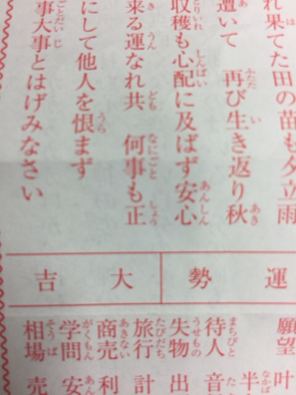 れ果てた田の苗も夕立雨
遭いて 再び生き返り秋
収穫も心配に及ばず安心
来る運なれ共 何事も正
にして他人を恨まず
事大事とはげみなさい
運勢 大吉
願望 叶
半
待人 音
失物 出
旅行 計
商売 利
学問 安
相場 売